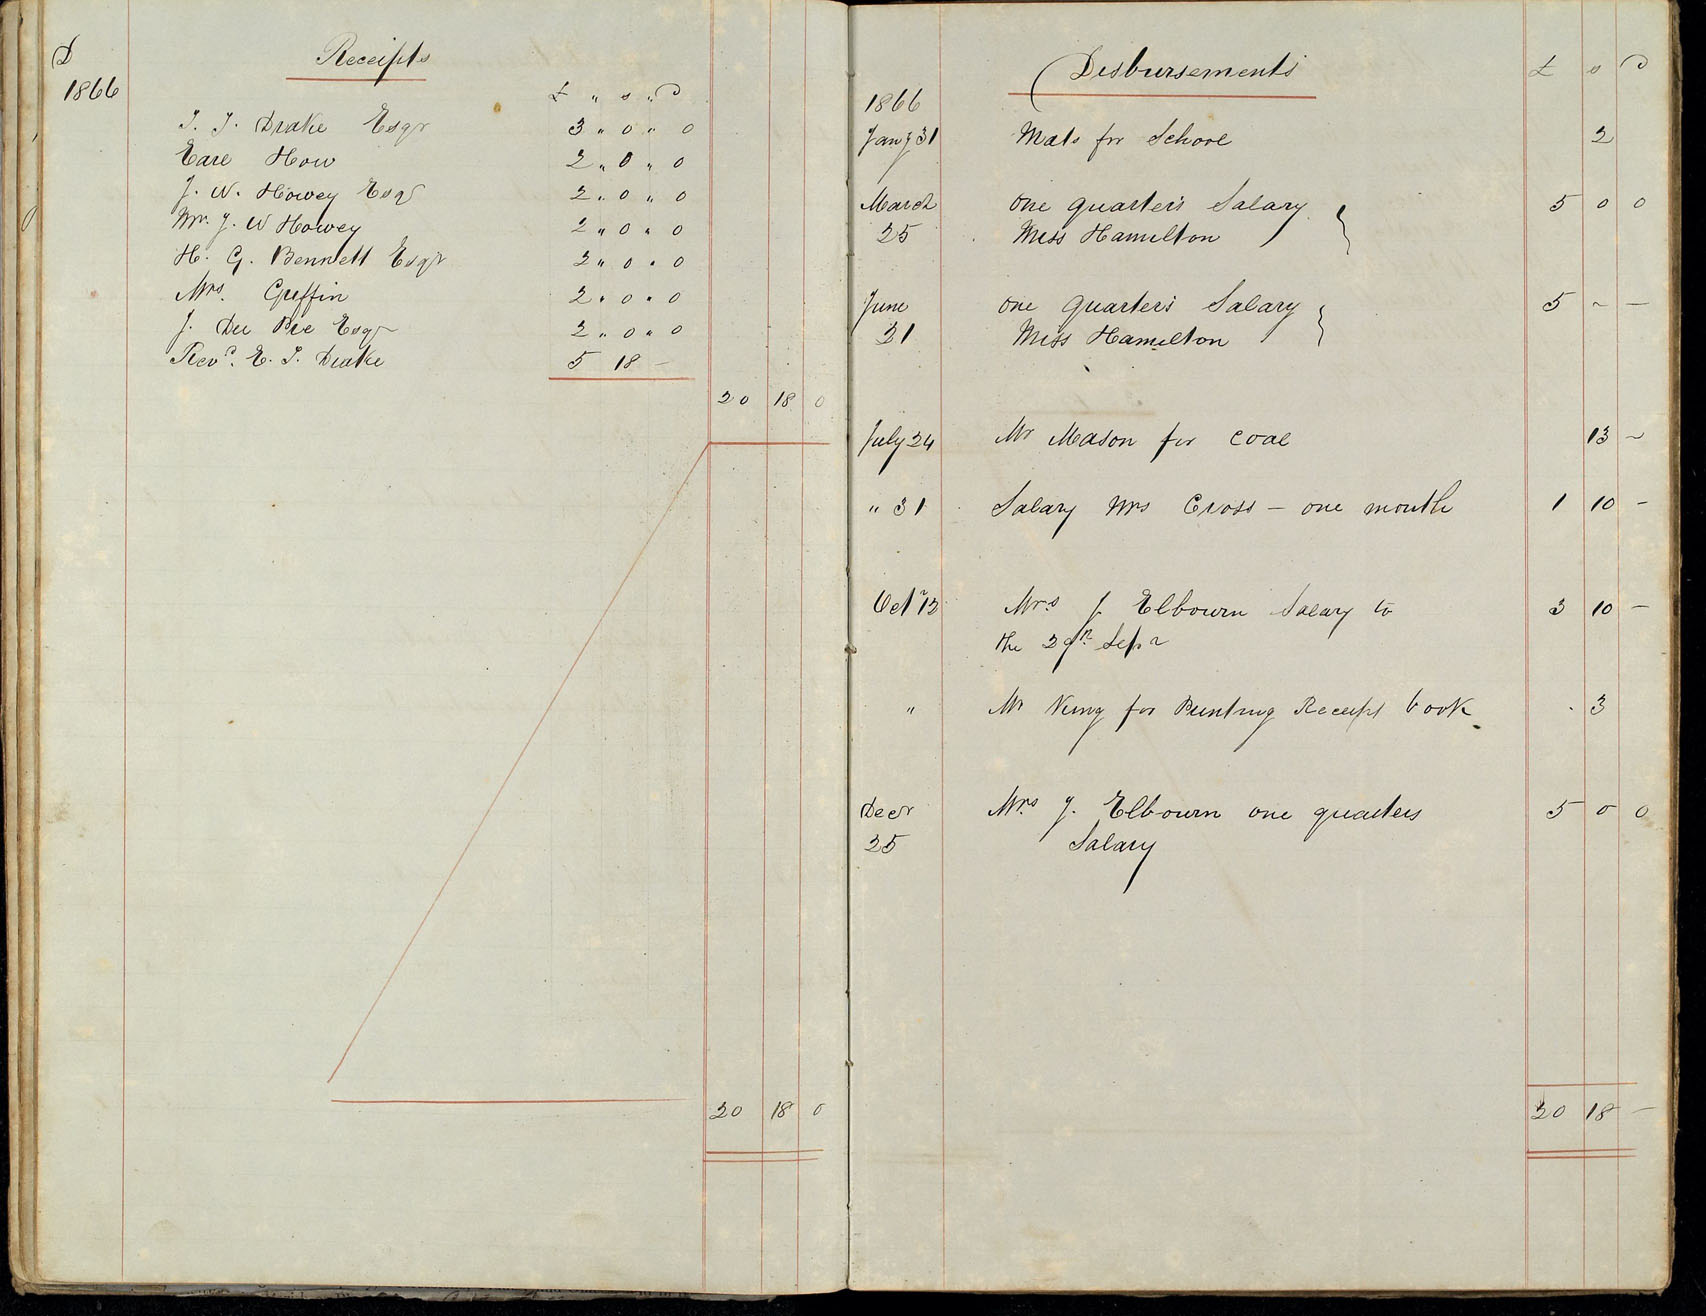 D
Receipts
1866
£ " s " D
T. T. Drake Esqr 3 " 0 " 0
Earl Howe 2 " 0 " 0
J. W. Howey Esqr 2 " 0 " 0
Mr. J. W Howey 2 " 0 " 0
H. G. Bennett Esqr 2 " 0 " 0
Mrs. Griffin 2 " 0 " 0
J. Du Pre Esqr 2 " 0 " 0
Revd. E. T. Drake 5 18 -
20 18 0
20 18 0
Disbursements £ s D
1866
Jany 31 Mats for School 2
March one quarter's Salary 5 0 0
25 Miss Hamilton
June one quarter's Salary 5 - -
21 Miss Hamilton
July 24 Mr Mason for Coal 13 -
" 31 Salary Mrs Cross - one month 1 10 -
Octr 13 Mrs J Elbourn Salary to 3 10 -
the 29th Sepr
" Mr King for Printing Receipt book 3
Decr Mrs J. Elbourn one quarters 5 0 0
25 Salary
20 18 -